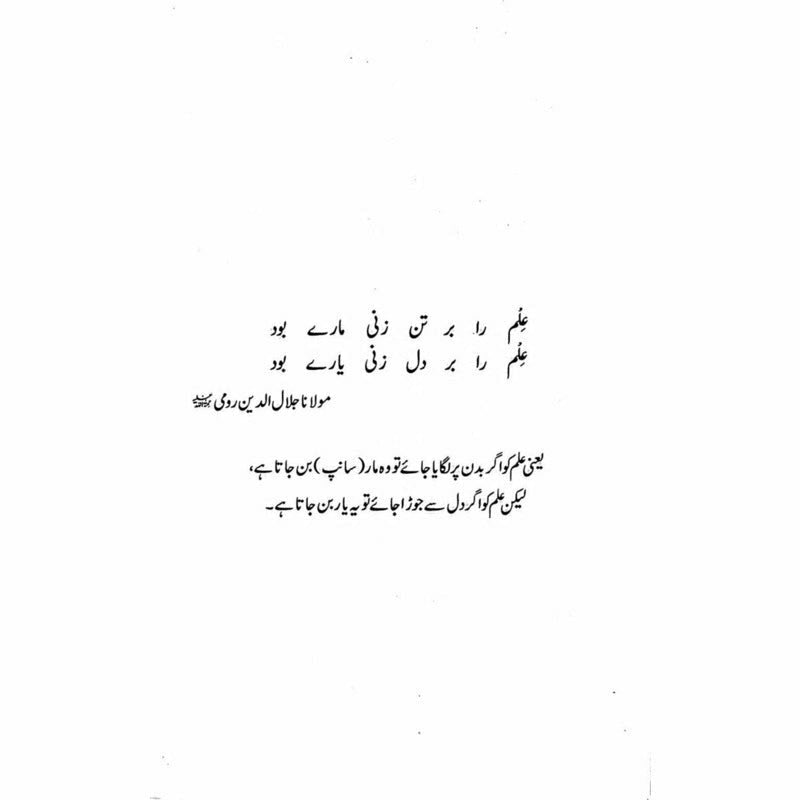 عِلْم را بر تن زنی مارے بود
عِلْم را بر دل زنی یارے بود
مولانا جلال الدین رومی رحمۃ اللہ علیہ
یعنی علم کو اگر بدن پر لگایا جائے تو وہ مار (سانپ) بن جاتا ہے،
لیکن علم کو اگر دل سے جوڑا جائے تو یہ یار بن جاتا ہے۔